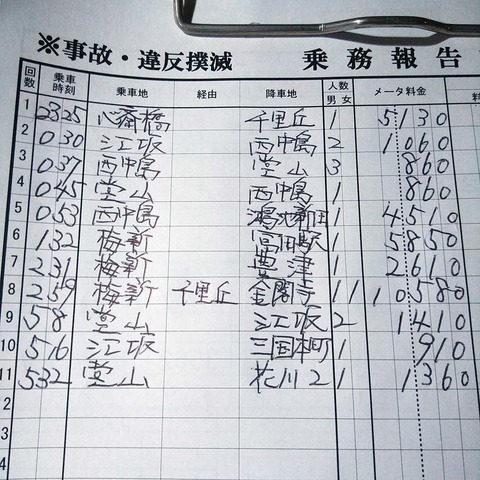 ※事故・違反撲滅 乗務報告
回数 乗車時刻 乗車地 経由 降車地 人数 男 女 メータ料金 料
1 2325 心斎橋 千里丘 1 5130
2 030 江坂 西中島 2 1060
3 037 西中島 堂山 3 860
4 045 堂山 西中島 1 860
5 053 西中島 鴻池新田 1 4510
6 132 梅新 富田駅 1 5850
7 231 梅新 豊津 1 2610
8 259 梅新 千里丘 金閣寺 1 1 10580
9 58 堂山 江坂 2 1410
10 516 江坂 三国本町 1 910
11 532 堂山 花川2 1 1360
12
13
14